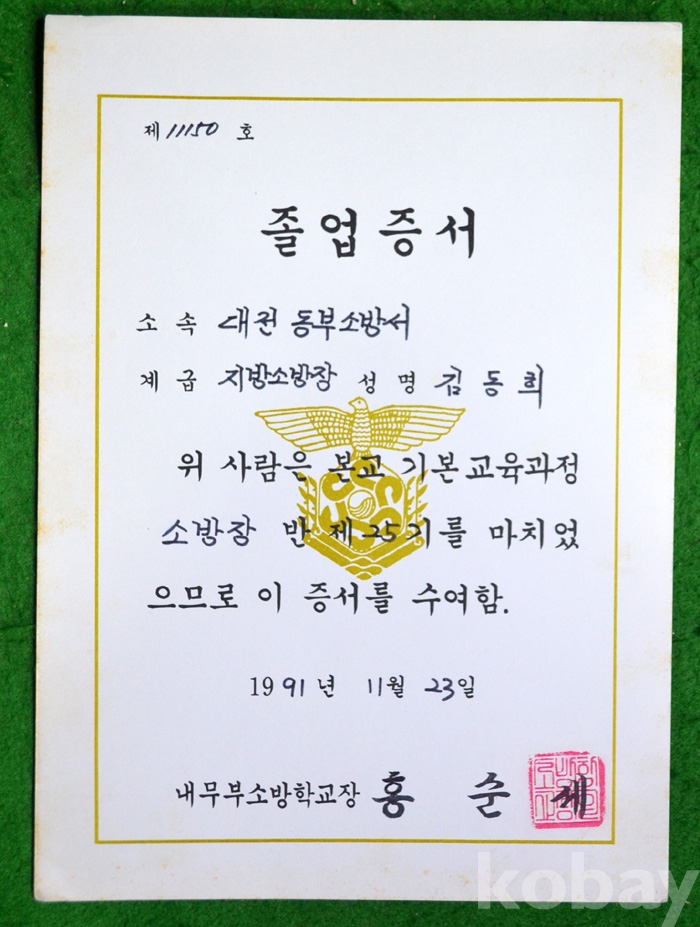 제 11150 호
졸업증서
소속 대전 동부소방서
계급 지방소방장 성명 김동희
위 사람은 본교 기본교육과정
소방장 반 제 25기를 마치었
으므로 이 증서를 수여함.
1991년 11월 23일
내무부소방학교장 홍순
kobay